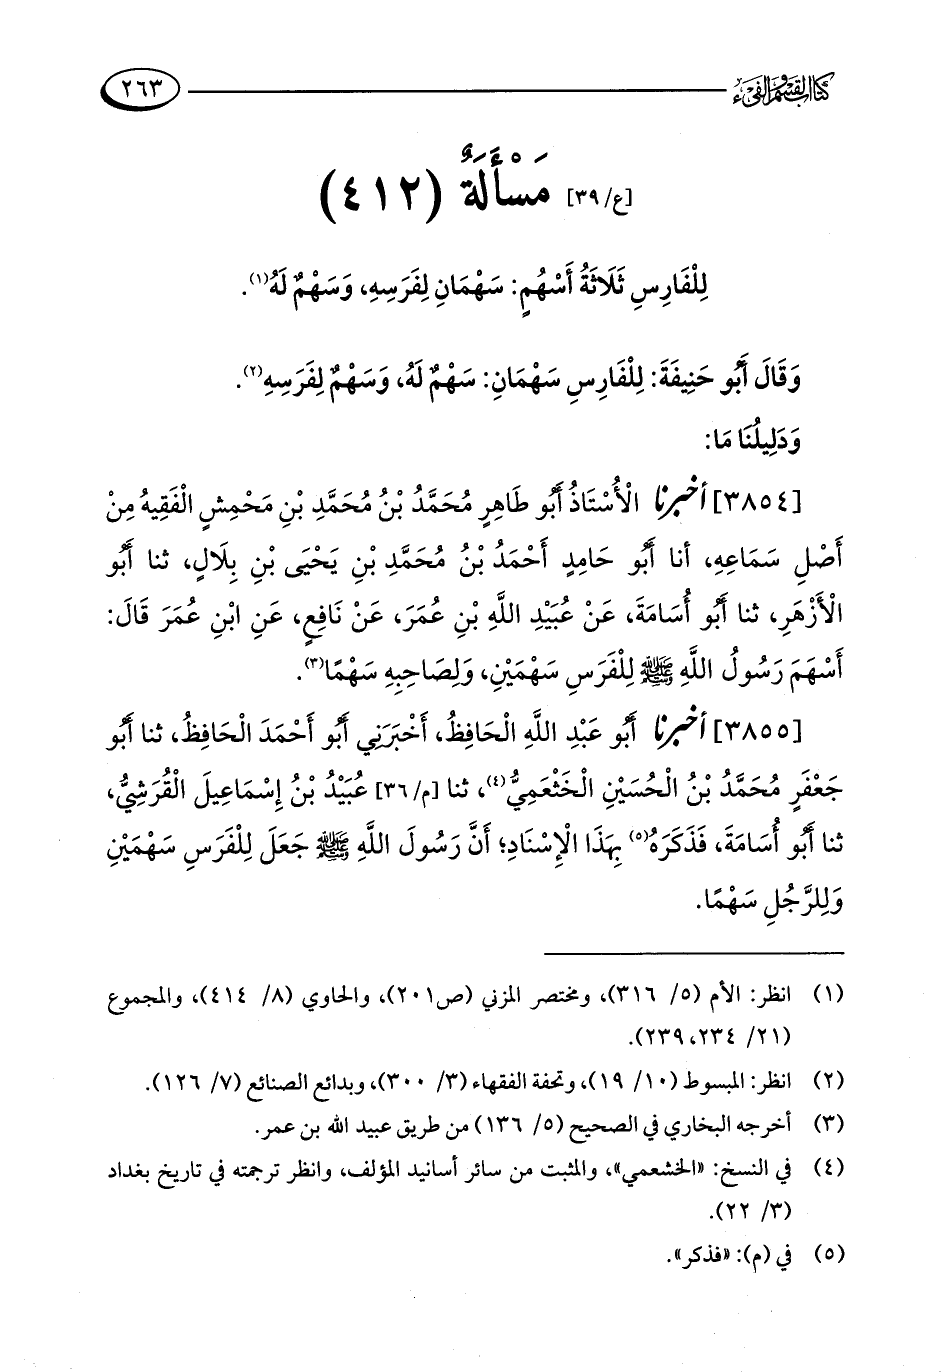 كتاب القسم والفيء ٢٦٣
[ع/ ٣٩] مَسْأَلَةٌ (٤١٢)
لِلْفَارِسِ ثَلَاثَةُ أَسْهُمٍ: سَهْمَانِ لِفَرَسِهِ، وَسَهْمٌ لَهُ(١).
وَقَالَ أَبُو حَنِيفَةَ: لِلْفَارِسِ سَهْمَانِ: سَهْمٌ لَهُ، وَسَهْمٌ لِفَرَسِهِ(٢).
وَدَلِيلُنَا مَا:
[٣٨٥٤] أخبرنا الْأُسْتَاذُ أَبُو طَاهِرٍ مُحَمَّدُ بْنُ مُحَمَّدِ بْنِ مَحْمِشٍ الْفَقِيهُ مِنْ
أَصْلِ سَمَاعِهِ، أنا أَبُو حَامِدٍ أَحْمَدُ بْنُ مُحَمَّدِ بْنِ يَحْيَى بْنِ بِلَالٍ، ثنا أَبُو
الْأَزْهَرِ، ثنا أَبُو أُسَامَةَ، عَنْ عُبَيْدِ اللَّهِ بْنِ عُمَرَ، عَنْ نَافِعٍ، عَنِ ابْنِ عُمَرَ قَالَ:
أَسْهَمَ رَسُولُ اللَّهِ ﷺ لِلْفَرَسِ سَهْمَيْنِ، وَلِصَاحِبِهِ سَهْمًا(٣).
[٣٨٥٥] أخبرنا أَبُو عَبْدِ اللَّهِ الْحَافِظُ، أَخْبَرَنِي أَبُو أَحْمَدَ الْحَافِظُ، ثنا أَبُو
جَعْفَرٍ مُحَمَّدُ بْنُ الْحُسَيْنِ الْخَثْعَمِيُّ(٤)، ثنا [م/ ٣٦] عُبَيْدُ بْنُ إِسْمَاعِيلَ الْقُرَشِيُّ،
ثنا أَبُو أُسَامَةَ، فَذَكَرَهُ(٥) بِهَذَا الْإِسْنَادِ؛ أَنَّ رَسُولَ اللَّهِ ﷺ جَعَلَ لِلْفَرَسِ سَهْمَيْنِ
وَلِلرَّجُلِ سَهْمًا.
(١) انظر: الأم (٥/ ٣١٦)، ومختصر المزني (ص٢٠١)، والحاوي (٨/ ٤١٤)، والمجموع
(٢١/ ٢٣٤، ٢٣٩).
(٢) انظر: المبسوط (١٠/ ١٩)، وتحفة الفقهاء (٣/ ٣٠٠)، وبدائع الصنائع (٧/ ١٢٦).
(٣) أخرجه البخاري في الصحيح (٥/ ١٣٦) من طريق عبيد الله بن عمر.
(٤) في النسخ: «الخشعمي»، والمثبت من سائر أسانيد المؤلف، وانظر ترجمته في تاريخ بغداد
(٣/ ٢٢).
(٥) في (م): «فذكر».